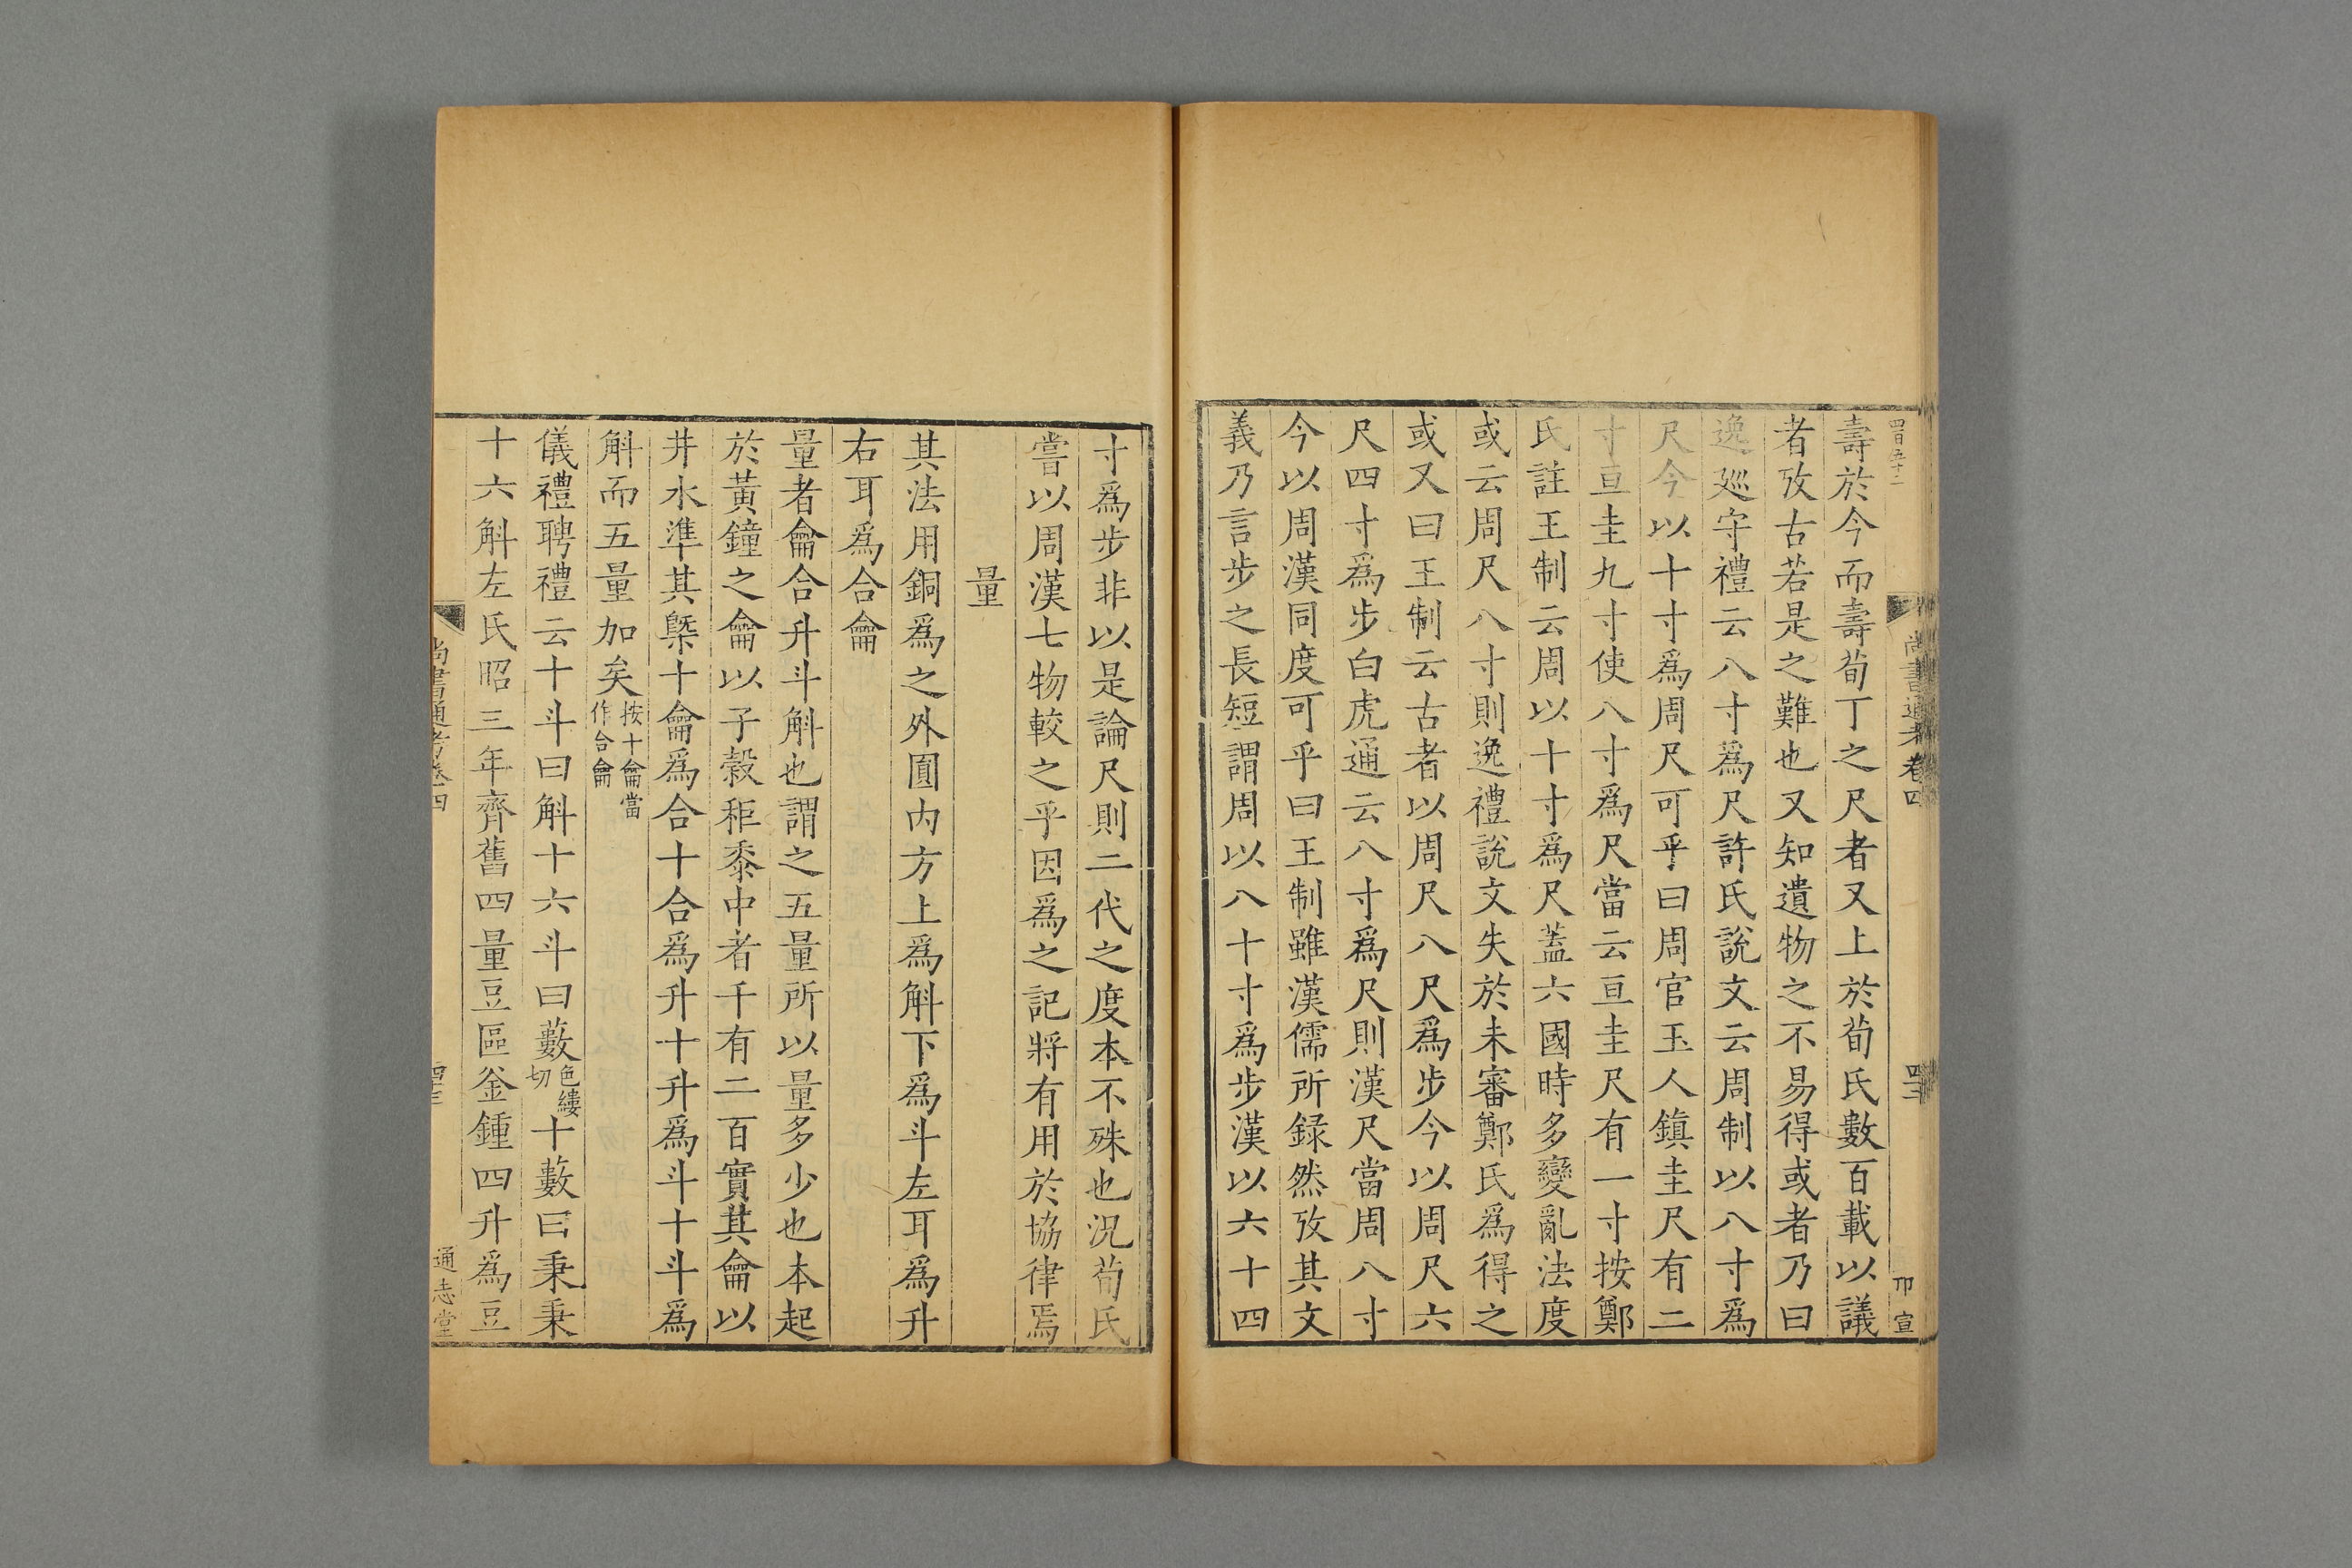 四百五十二
尚書通考卷四
四十二
卬宣
壽於今而壽荀丁之尺者又上於荀氏數百載以議
者攷古若是之難也又知遺物之不易得或者乃曰
逸廵守禮云八寸爲尺許氏說文云周制以八寸爲
尺今以十寸爲周尺可乎曰周官玉人鎮圭尺有二
寸亘圭九寸使八寸爲尺當云亘圭尺有一寸按鄭
氏註王制云周以十寸爲尺蓋六國時多變亂法度
或云周尺八寸則逸禮說文失於未審鄭氏爲得之
或又曰王制云古者以周尺八尺爲步今以周尺六
尺四寸爲步白虎通云八寸爲尺則漢尺當周八寸
今以周漢同度可乎曰王制雖漢儒所録然攷其文
義乃言步之長短謂周以八十寸爲步漢以六十四
寸爲步非以是論尺則二代之度本不殊也況荀氏
嘗以周漢七物較之乎因爲之記將有用於協律焉
量
其法用銅爲之外圓内方上爲斛下爲斗左耳爲升
右耳爲合龠
量者龠合升斗斛也謂之五量所以量多少也本起
於黃鐘之龠以子穀秬黍中者千有二百實其龠以
井水準其槩十龠爲合十合爲升十升爲斗十斗爲
斛而五量加矣按十龠當
作合龠
儀禮聘禮云十斗曰斛十六斗曰藪色縷
切十藪曰秉秉
十六斛左氏昭三年齊舊四量豆區釜鍾四升爲豆
尚書通考卷四
通志堂